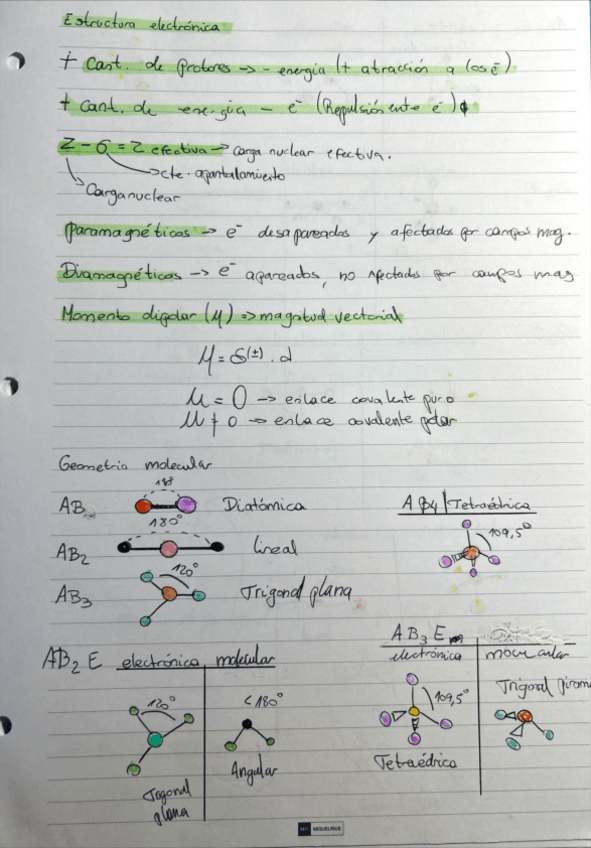 Estructura electrónica
+ Cant. de protones → - energia (+ atracción a los e⁻)
+ Cant. de energia - e⁻ (Repulsión ente e⁻)
Z - σ = Z efectiva → Carga nuclear efectiva.
→ cte. apantalamiento
Carga nuclear
Paramagnéticos → e⁻ desapareados y afectados por campos mag.
Diamagnéticos → e⁻ apareados, no afectados por campos mag
Momento dipolar (μ) => magnitud vectorial
μ = δ(±) . d
μ = 0 → enlace covalente puro
μ ≠ 0 → enlace covalente polar
Geometria molecular
AB 180 Diatómica
AB4 | Tetraédrica
109,5°
AB2 180° lineal
AB3 120° Trigonal plana
AB2 E electrónica molecular
120° <180°
Trigonal plana
Angular
AB3 E
electrónica molecular
109,5°
Tetraédrica
Trigonal piram
MIQUELIBUS